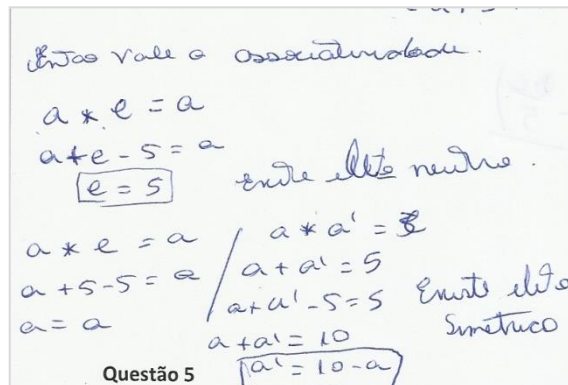 Então vale a associatividade.
a * e = a
a + e - 5 = a
e = 5
existe elto neutro.
a * e = a
a + 5 - 5 = a
a = a
a * a' =
a + a' = 5
a + a' - 5 = 5
a + a' = 10
a' = 10 - a
Existe elto
Simétrico
Questão 5